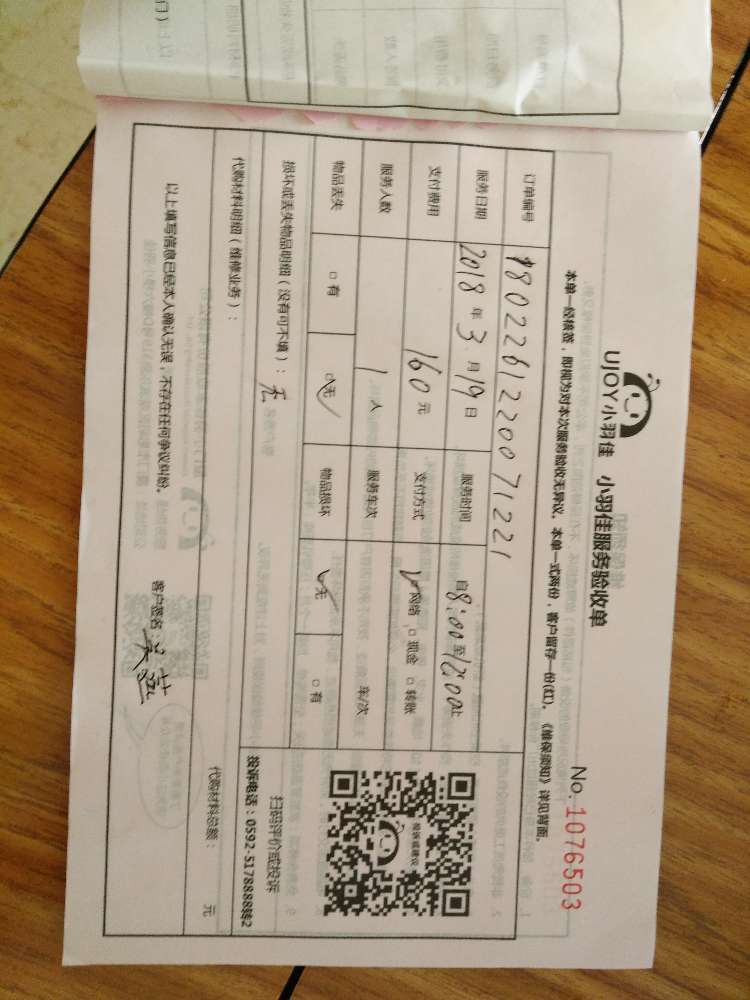 UJOY小羽佳 小羽佳服务验收单
No.1076503
本单一经核签，即视为对本次服务验收无异议。本单一式两份，客户留存一份(红)。《维保须知》详见背面。
订单编号 1802261220071221
服务日期 2018年3月19日 服务时间 自8:00至12:00止
支付费用 160元 支付方式 ☑网络 □现金 □转账
服务人数 1人 服务车次 车/次
物品丢失 □有 ☑无 物品损坏 ☑无 □有
损坏或丢失物品明细（没有可不填）：无
代购材料明细（维修业务）：
代购材料总额： 元
投诉或建议
扫码评价或投诉
投诉电话：0592-5178888转2
以上填写信息已经本人确认无误，不存在任何争议纠纷。
客户签名